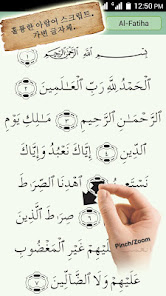 12:50 PM
훌륭한 아랍어 스크립트,
가변 글자체..
Al-Fatiha
بِسْمِ ٱللَّهِ ٱلرَّحْمَٰنِ ٱلرَّحِيمِ ١
ٱلْحَمْدُ لِلَّهِ رَبِّ ٱلْعَٰلَمِينَ ٢
ٱلرَّحْمَٰنِ ٱلرَّحِيمِ ٣ مَٰلِكِ يَوْمِ
ٱلدِّينِ ٤ إِيَّاكَ نَعْبُدُ وَإِيَّاكَ
نَسْتَعِينُ ٥ ٱهْدِنَا ٱلصِّرَٰطَ
٦ صِرَٰطَ ٱلَّذِينَ
عَلَيْهِمْ غَيْرِ ٱلْمَغْضُوبِ
عَلَيْهِمْ وَلَا ٱلضَّآلِّينَ ٧
Pinch/Zoom